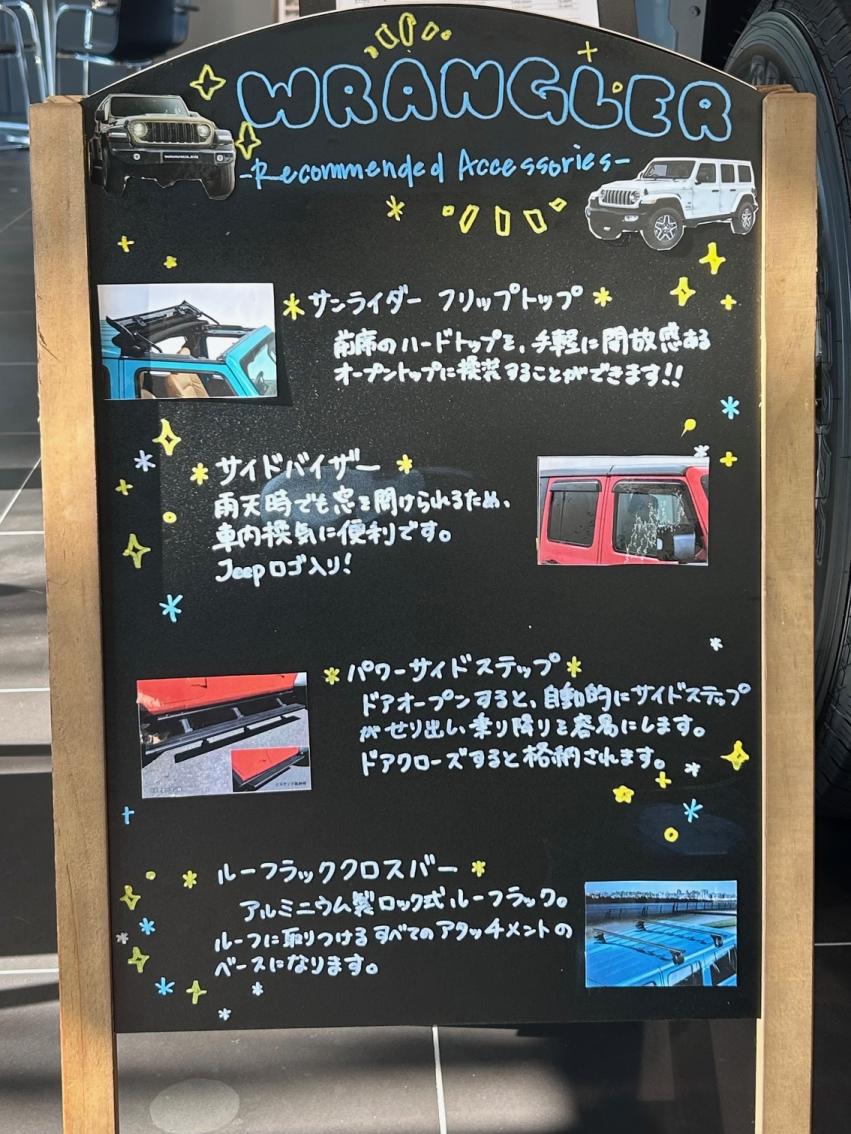 WRANGLER
-Recommended Accessories-
サンライダー フリップトップ
前席のハードトップを、手軽に開放感ある
オープントップに換装することができます!!
サイドバイザー
雨天時でも窓を開けられるため、
車内換気に便利です。
Jeepロゴ入り!
パワーサイドステップ
ドアオープンすると、自動的にサイドステップ
がせり出し、乗り降りを容易にします。
ドアクローズすると格納されます。
ルーフラッククロスバー
アルミニウム製ロック式ルーフラック。
ルーフに取りつけるすべてのアタッチメントの
ベースになります。